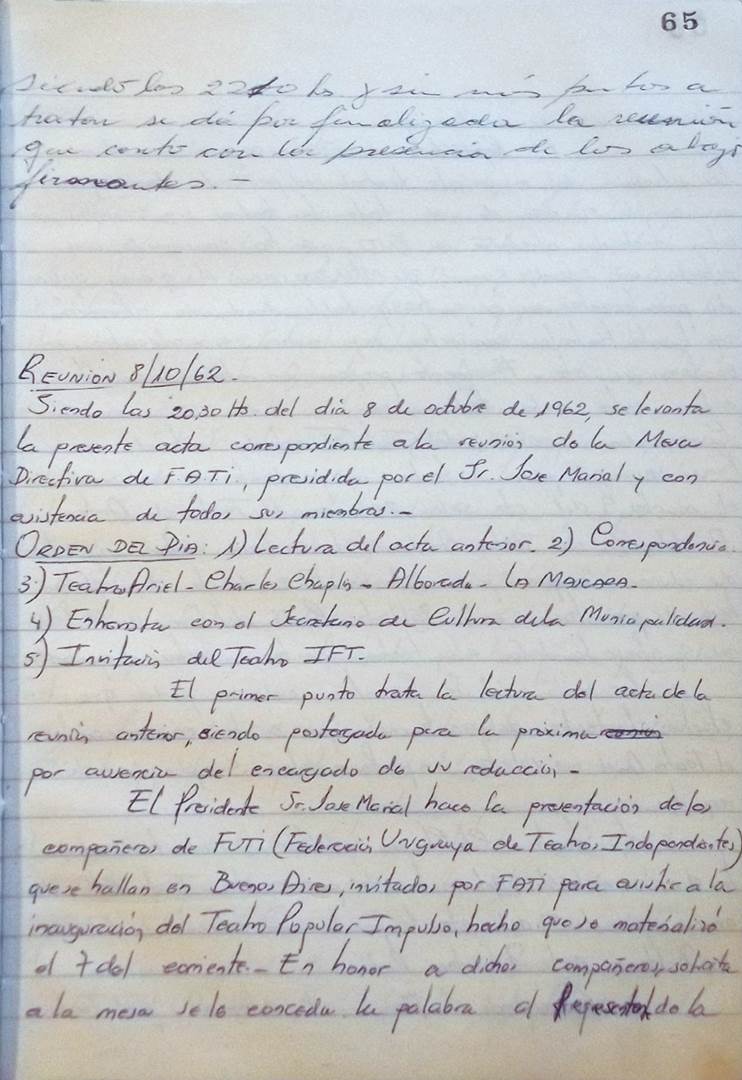 65
siendo las 2210 hs y sin más puntos a
tratar se dá por finalizada la reunión
que contó con la presencia de los abajo
firmantes.-
REUNION 8/10/62.
Siendo las 20,30 Hs. del día 8 de octubre de 1962, se levanta
la presente acta correspondiente a la reunión de la Mesa
Directiva de F.A.Ti., presidida por el Sr. Jose Marial y con
asistencia de todos sus miembros.-
ORDEN DEL DIA: 1) Lectura del acta anterior. 2) Correspondencia.
3) Teatro Ariel - Charles Chaplin - Alborada - LA MASCARA.
4) Entrevista con el Secretario de Cultura de la Municipalidad.
5) Invitación del Teatro IFT.
El primer punto trata la lectura del acta de la
reunión anterior, siendo postergada para la próxima reunión
por ausencia del encargado de su redacción.-
El Presidente Sr. Jose Marial hace la presentación de los
compañeros de FUTi (Federación Uruguaya de Teatros Independientes)
que se hallan en Buenos Aires, invitados por FATi para asistir a la
inauguración del Teatro Popular Impulso, hecho que se materializó
el 7 del corriente.- En honor a dichos compañeros, solicita
a la mesa se le conceda la palabra al Representante de la